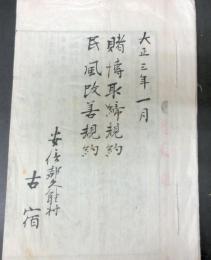 大正三年一月
賭博取締規約
民風改善規約
安倍郡久能村
古宿